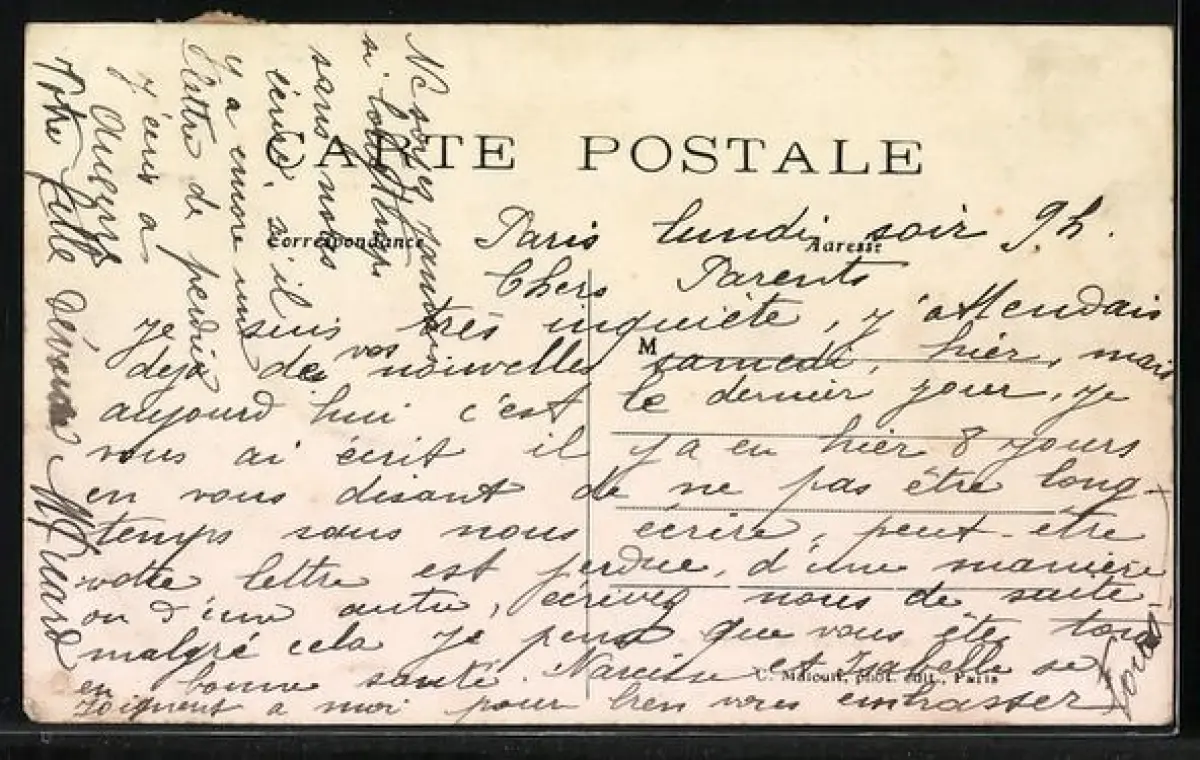 CARTE POSTALE
Correspondance
Adresse
M
Paris lundi soir 9h.
Chers Parents
Je suis très inquiète, j'attendais
déjà de vos nouvelles samedi, hier, mais
aujourd'hui c'est le dernier jour, je
vous ai écrit il y a eu hier 8 jours
en vous disant de ne pas être long-
temps sans nous écrire, peut-être
votre lettre est perdue, d'une manière
ou d'une autre, écrivez nous de suite
malgré cela je pense que vous êtes tous
en bonne santé. Narcisse et Isabelle se
joignent à moi pour bien vous embrasser
tous
phot. édit., Paris
Ne soyez jamais
si longtemps
sans nous
écrire, s'il
y a encore une
lettre de perdue
j'écris à
Votre fille dévouée